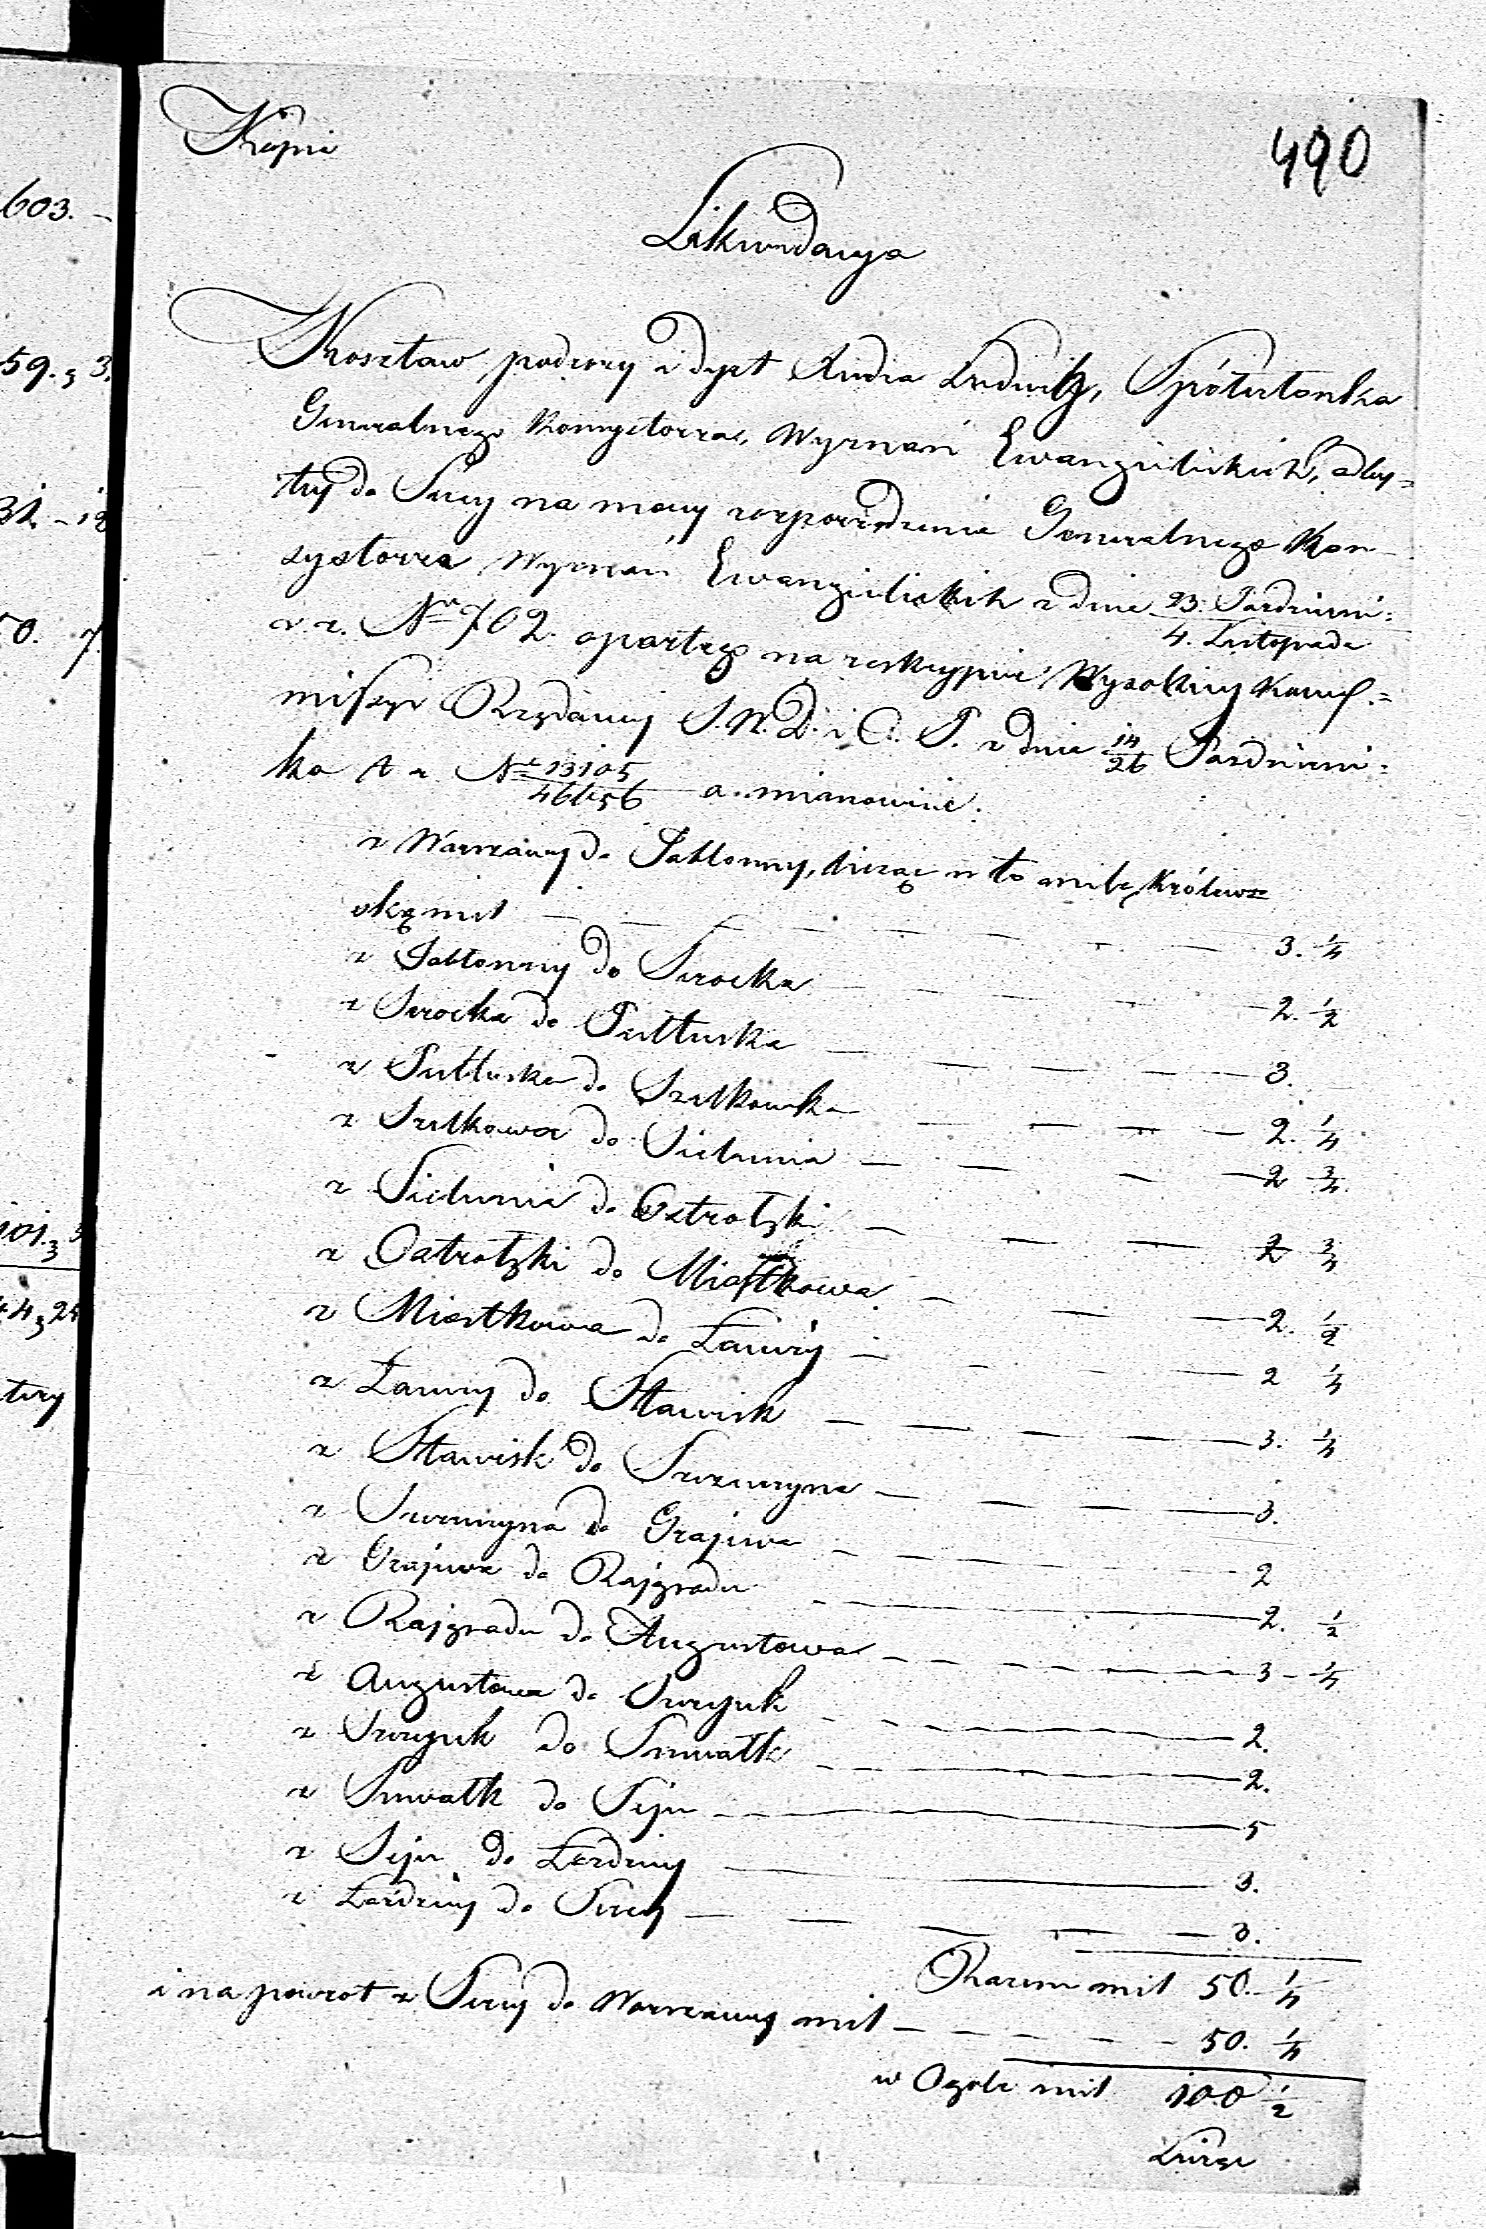 603. -
59. 3.
31. - 18
50. 7.
101. 3
44, 25
tery
Kopia
490
Likwidacya
Kosztow podrózy i dyet Xiedza Ludwig, Spółczłonka
Generalnego Konsystorza, Wyznań Ewangielickich, odby=
tey do Serey na mocy rozporządzenia Generalnego Kon-
systorza Wyznań Ewangielickich z dnia 23. Pazdzierni=/4. Listopada
r. z. No 702. opartego na reskrypcie Wysokiey Koms=
missyi Rządowey S. W. D. i O. P. z dnia 14/26 Pazdzierni=
ka t. r. No 13105/46656 a. mianowicie:
z Warszawy do Jabłonny, licząc w to milę Królews=
ską mil — 3. 1/4
z Jabłonny do Serocka — 2. 1/2
z Serocka do Pułtuska — 3.
z Pułtuska do Szelkowka — 2. 1/4
z Szelkowa do Sielunia — 2 3/4
z Sielunia do Ostrołęki — 2 3/4
z Ostrołęki do Miastkowa — 2. 1/2
z Miastkowa do Łomży — 2 1/4
z Łomży do Stawisk — 3. 1/4
z Stawisk do Szczuczyna — 3.
z Szczuczyna do Grajewa — 2
z Grajewa do Rajgrodu — 2. 1/2
z Rajgrodu do Augustowa — 3 - 1/4
z Augustowa do Szczepek — 2.
z Szczepek do Suwałk — 2.
z Suwałk do Sejn — 5
z Sejn do Łozdziey — 3.
z Łozdziey do Serey — 3.
Razem mil 50. 1/4
i na powrot z Serey do Warszawy mil — 50. 1/4
w Ogole mil 100 1/2
Licząc